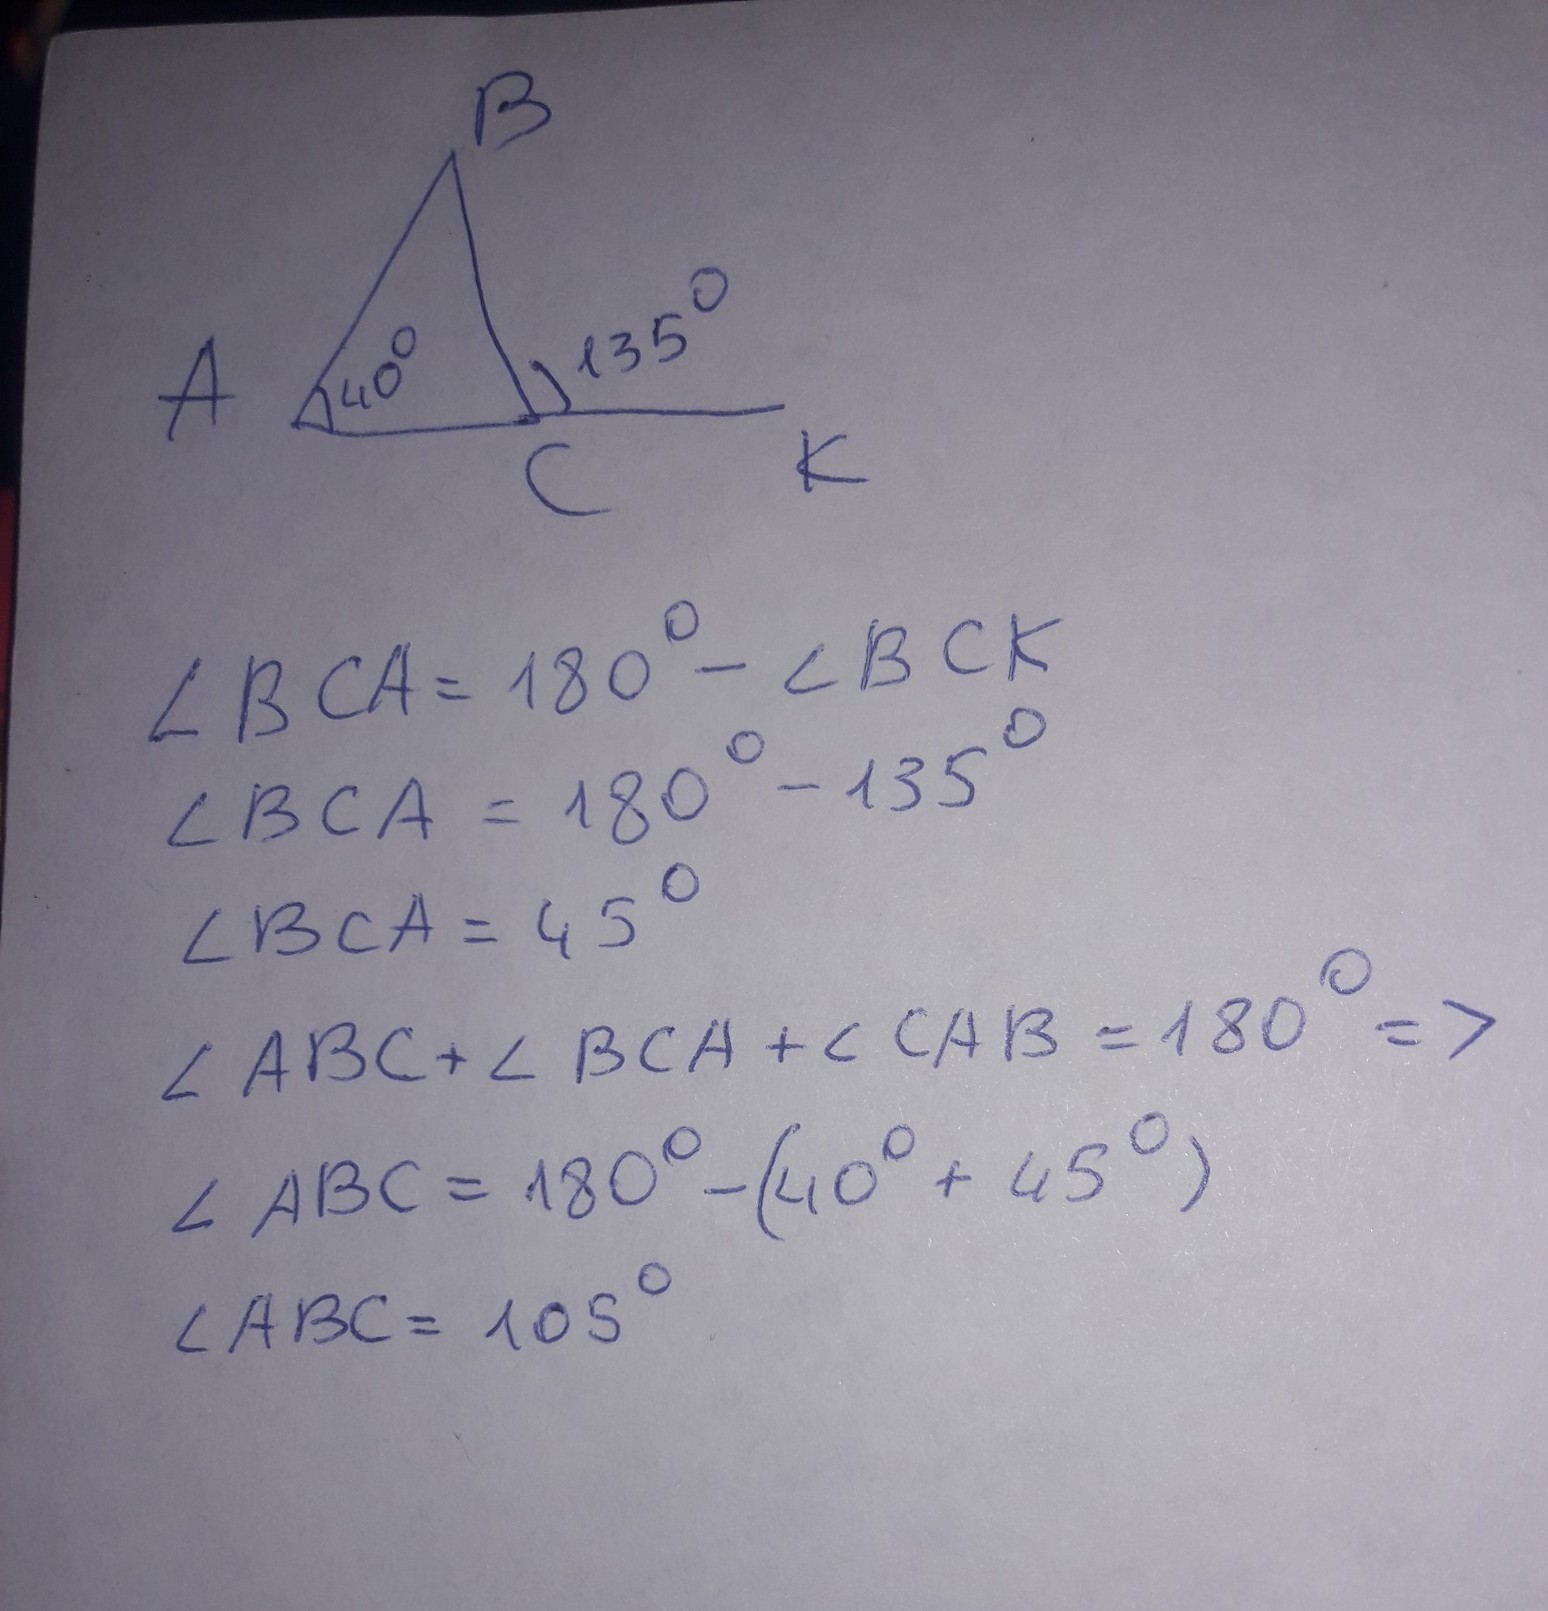 B
A 40° 135°
C K
∠BCA = 180° - ∠BCK
∠BCA = 180° - 135°
∠BCA = 45°
∠ABC + ∠BCA + ∠CAB = 180° =>
∠ABC = 180° - (40° + 45°)
∠ABC = 105°